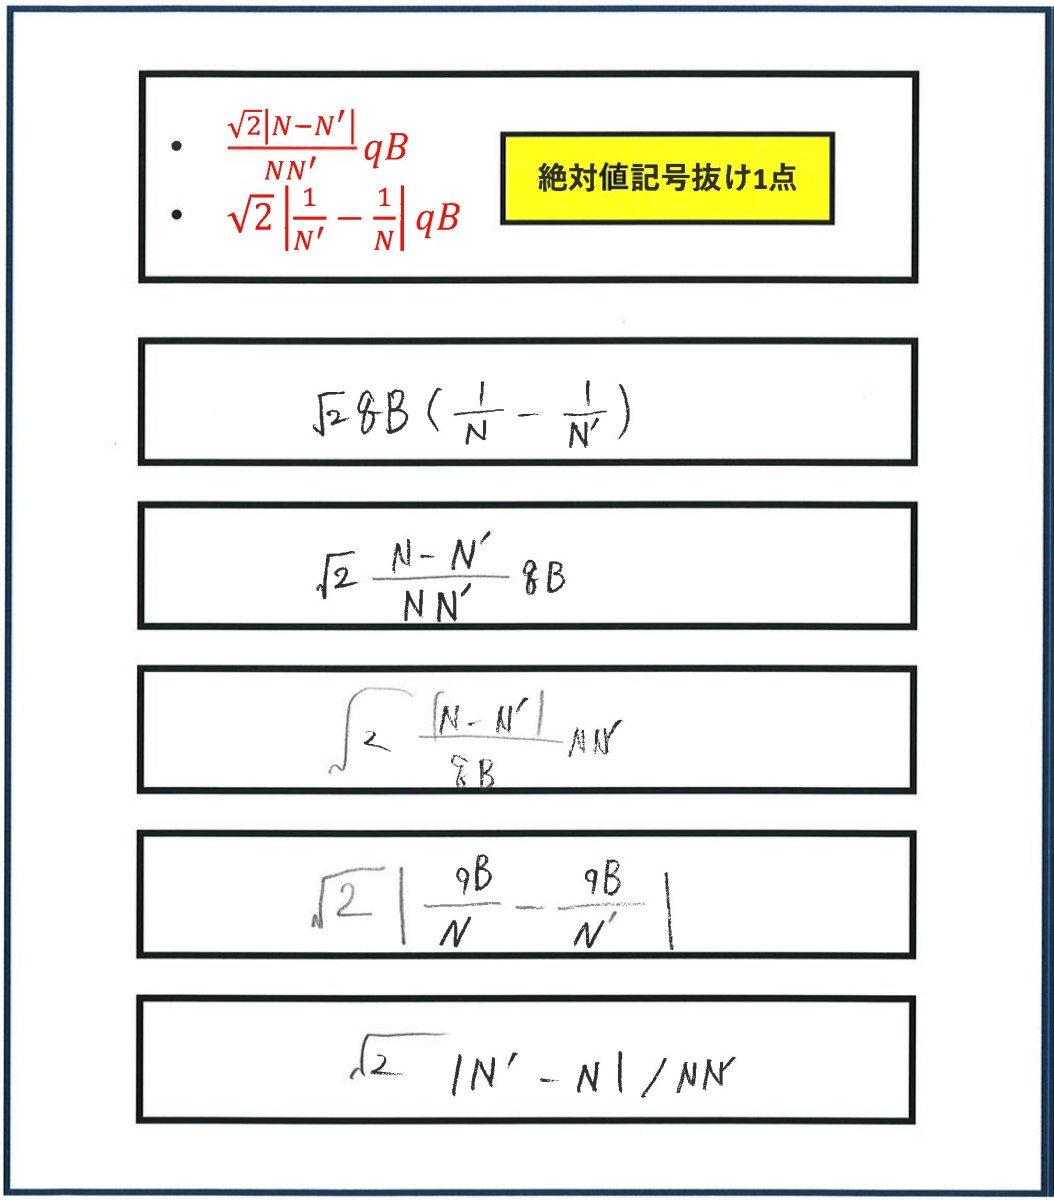 • \frac{\sqrt{2}|N-N'|}{NN'}qB
• \sqrt{2}\left|\frac{1}{N'}-\frac{1}{N}\right|qB
絶対値記号抜け1点
\sqrt{2}qB(\frac{1}{N}-\frac{1}{N'})
\sqrt{2}\frac{N-N'}{NN'}qB
\sqrt{2}\frac{|N-N'|}{qB}NN'
\sqrt{2}\left|\frac{qB}{N}-\frac{qB}{N'}\right|
\sqrt{2}|N'-N|/NN'